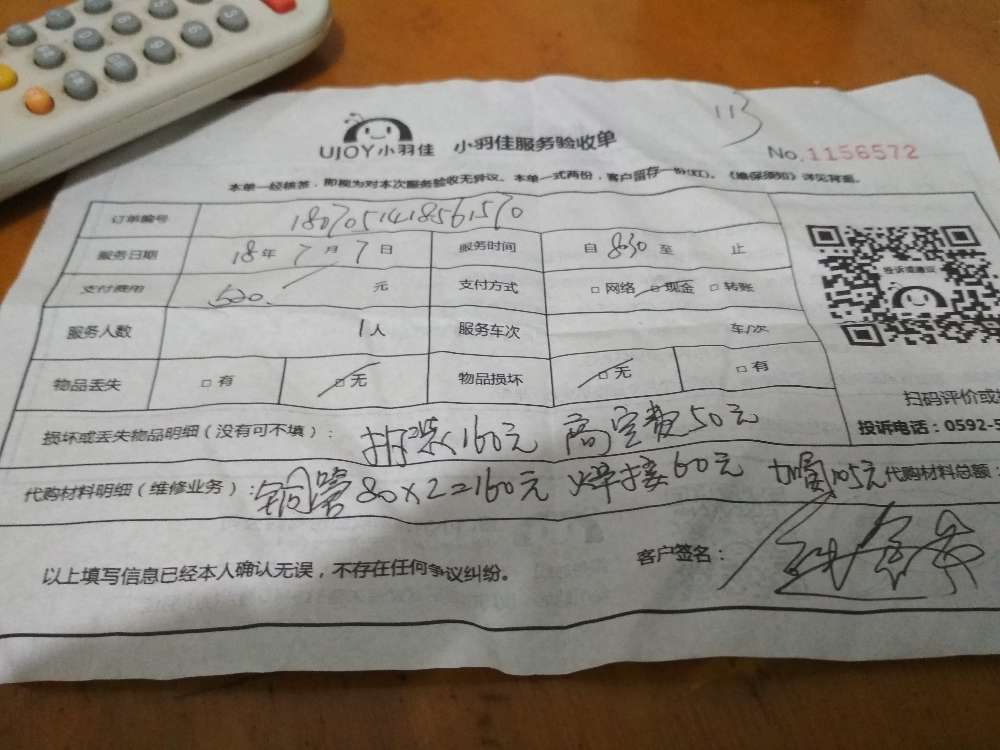 113
UJOY小羽佳 小羽佳服务验收单 No.1156572
本单一经核签，即视为对本次服务验收无异议。本单一式两份，客户留存一份(红)。《维保须知》详见背面。
订单编号 1807051418561570
服务日期 18年7月7日 服务时间 自 830 至 止
支付费用 520. 元 支付方式 □网络 □现金 □转账
服务人数 1人 服务车次 车/次
物品丢失 □有 □无 物品损坏 □无 □有
投诉或建议
扫码评价或
损坏或丢失物品明细（没有可不填）： 拆装160元 高空费50元
投诉电话：0592-5
代购材料明细（维修业务）： 铜管80×2=160元 焊接60元 加氟105元 代购材料总额：
以上填写信息已经本人确认无误，不存在任何争议纠纷。 客户签名：